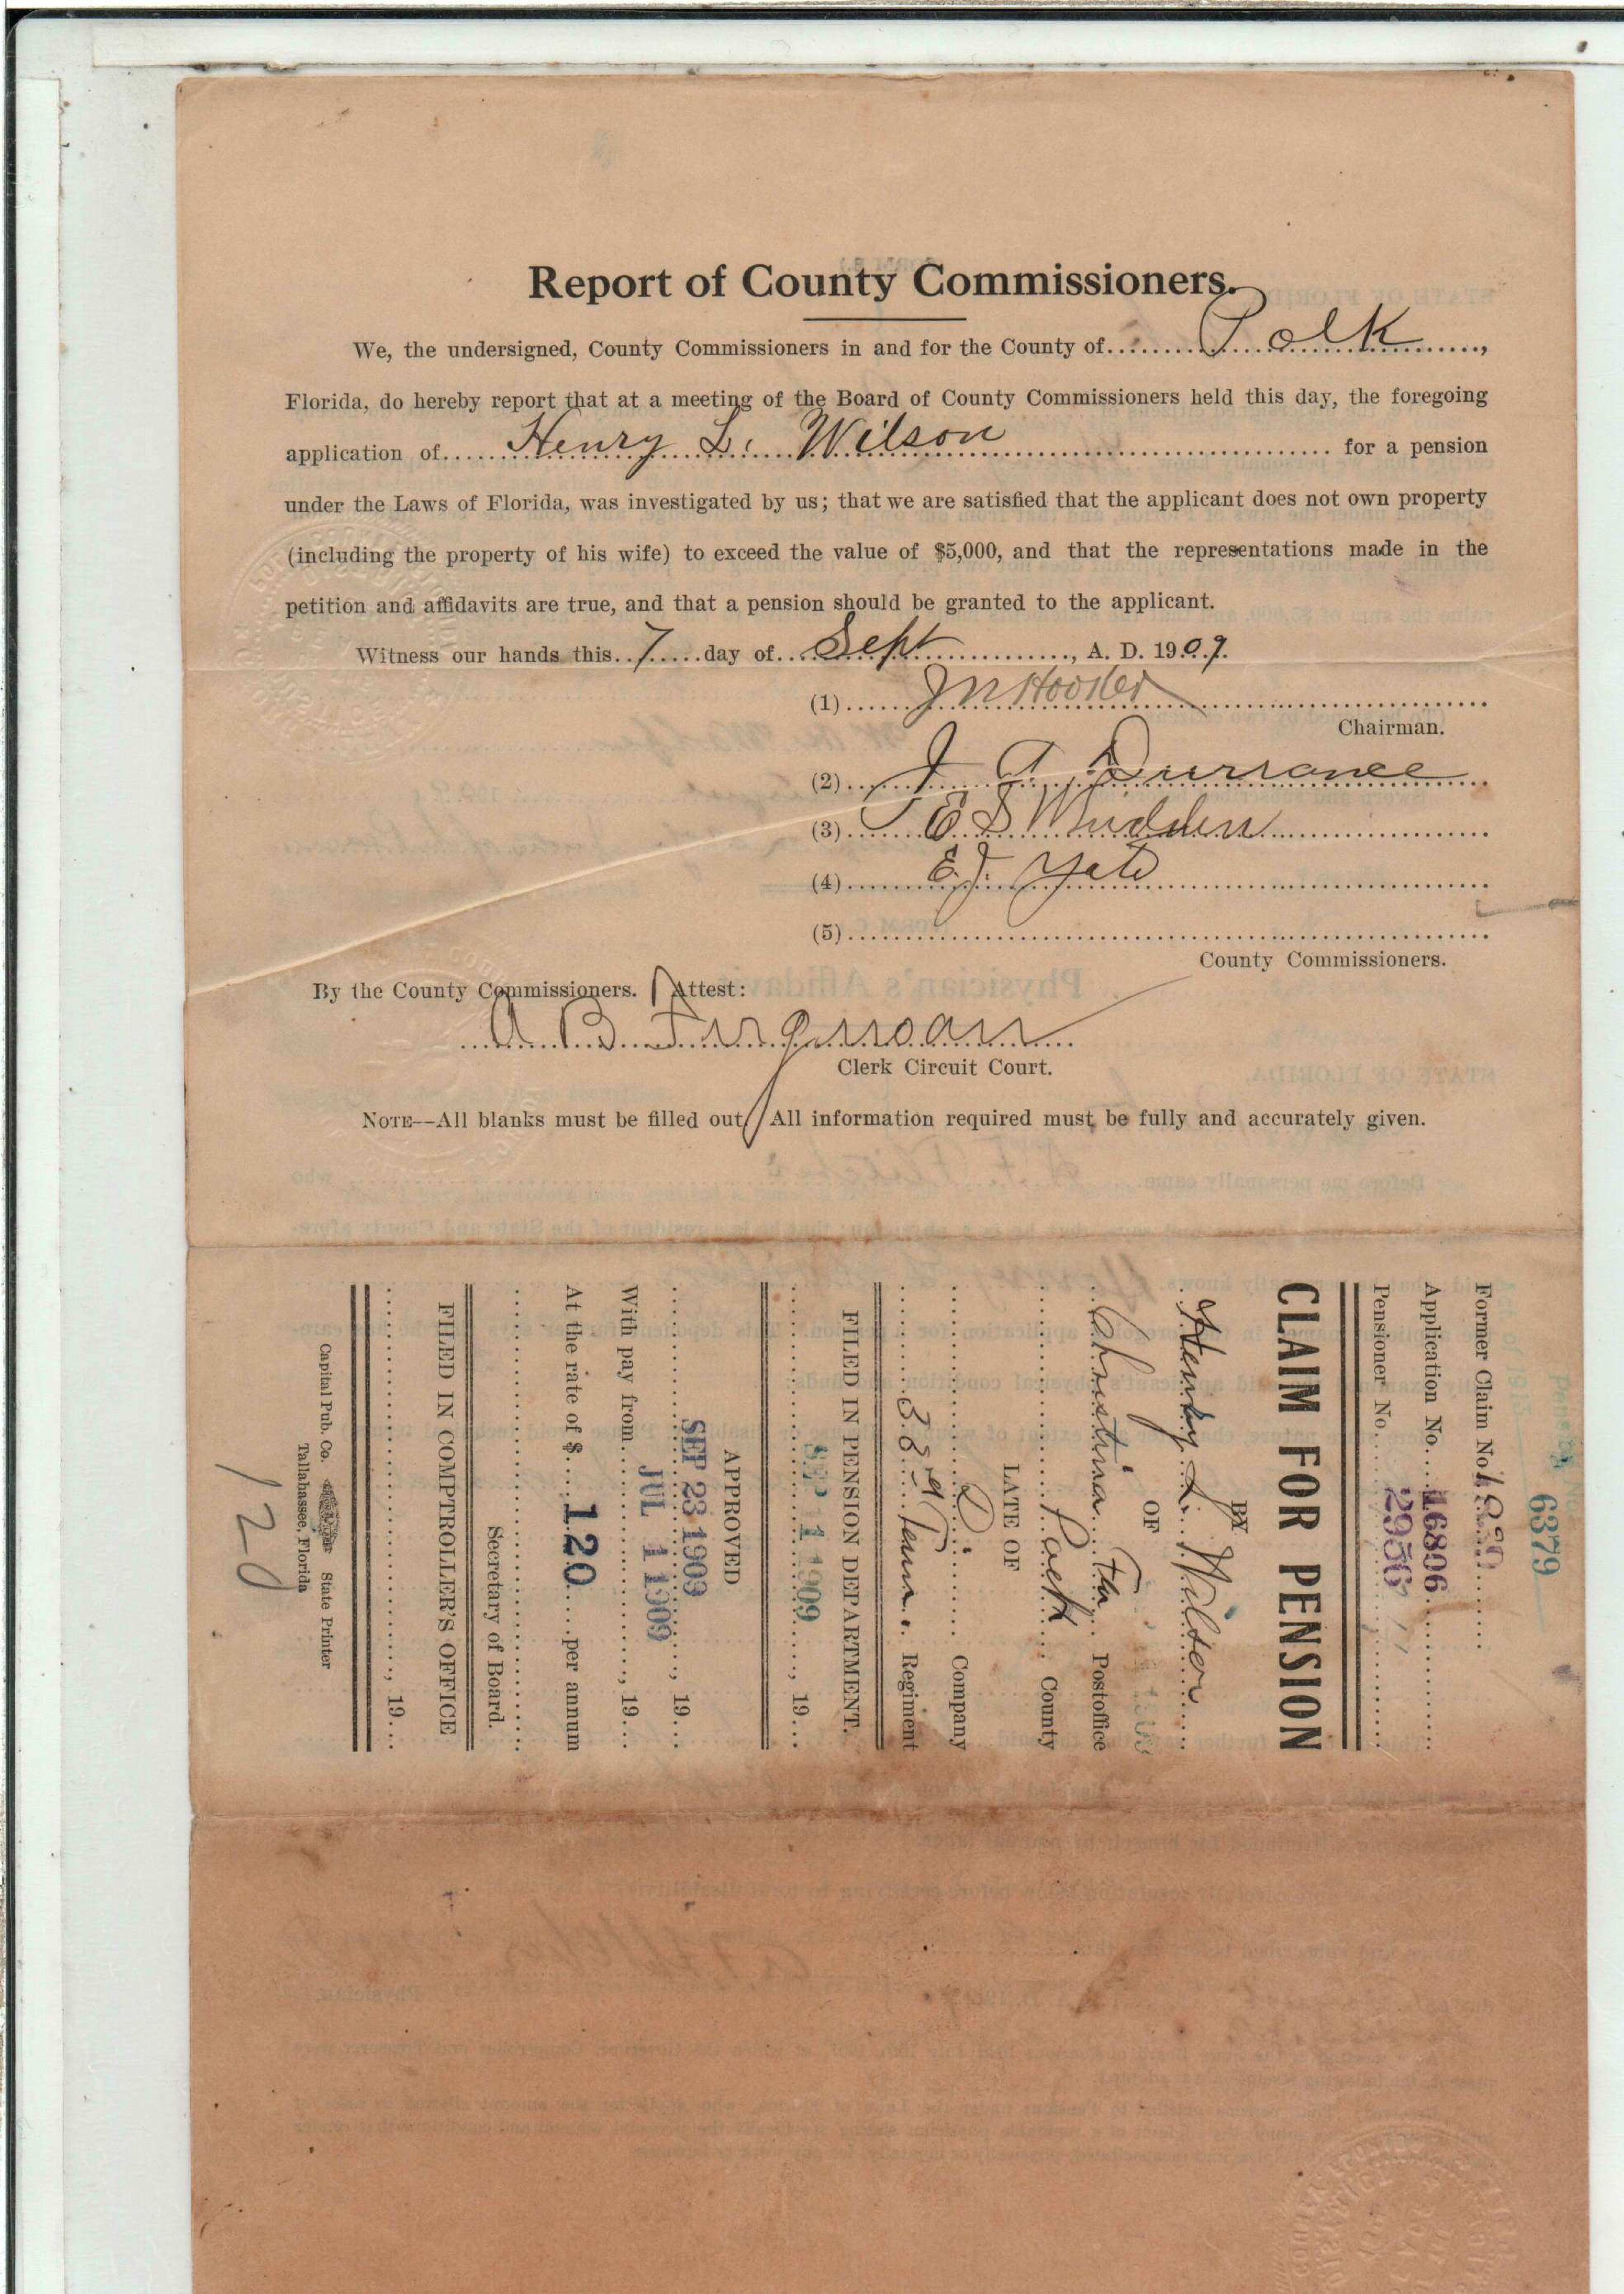 Report of County Commissioners.
We, the undersigned, County Commissioners in and for the County of Polk,
Florida, do hereby report that at a meeting of the Board of County Commissioners held this day, the foregoing
application of Henry L. Wilson for a pension
under the Laws of Florida, was investigated by us; that we are satisfied that the applicant does not own property
(including the property of his wife) to exceed the value of $5,000, and that the representations made in the
petition and affidavits are true, and that a pension should be granted to the applicant.
Witness our hands this 7 day of Sept, A. D. 1909.
(1) J N Hooker
Chairman.
(2) J A Durrance
(3) E S
(4) E. J.
(5)
County Commissioners.
By the County Commissioners. Attest:
A B Ferguson
Clerk Circuit Court.
NOTE--All blanks must be filled out. All information required must be fully and accurately given.
6379
Former Claim No.
Application No. 16896
Pensioner No. 2956
CLAIM FOR PENSION
BY
Henry L. Wilson
OF
Christina Fla Postoffice
Polk County
LATE OF
D. Company
38 Tenn. Regiment
FILED IN PENSION DEPARTMENT.
SEP 1 1909, 19
APPROVED
SEP 23 1909, 19
With pay from JUL 1 1909, 19
At the rate of $ 120 per annum
Secretary of Board.
FILED IN COMPTROLLER'S OFFICE
, 19
Capital Pub. Co. State Printer
Tallahassee, Florida
120